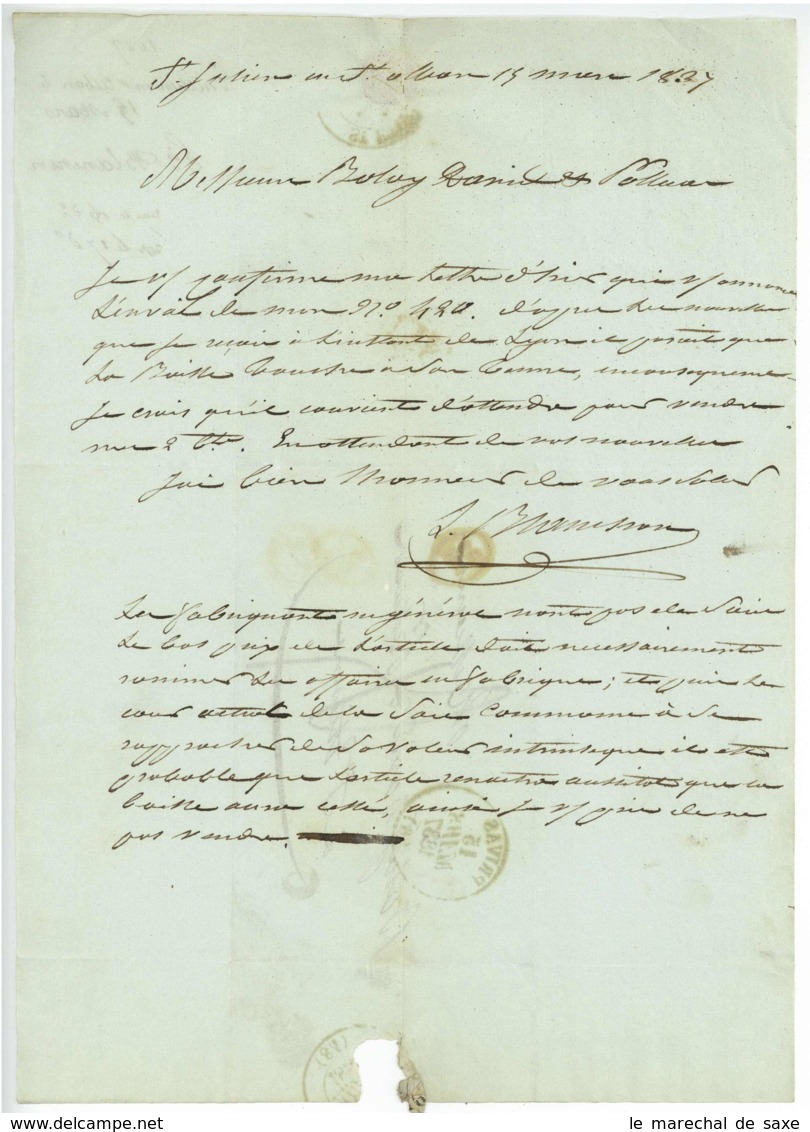 St Julien en St alban 15 mars 1837
Messieurs Boloy Daniel &
Je vs confirme ma lettre d'hier qui vs annonce
L'envoi de mon No 420. d'apprès les nouvelles
que je reçois à l'instant de Lyon il parait que
La Baisse touche à son terme, en conséquence
Je crois qu'il convient d'attendre pour vendre
mes 2 Btes. En attendant de vos nouvelles
J'ai bien l'honneur de vous saluer
L. Blanchon
Les fabriquants en général n'ont pas de Soie
Le bas prix de l'article doit nécessairement
ranimer les affaires en fabrique; et puis le
cour actuel de la Soie Commence à se
rapprocher de sa valeur intrinseque il est
probable que l'article renaitra aussitot que la
baisse aura cessé, ainsi je vs prie de ne
pas vendre.
PRIVAS
15
MARS
1837
(87)
le marechal de saxe